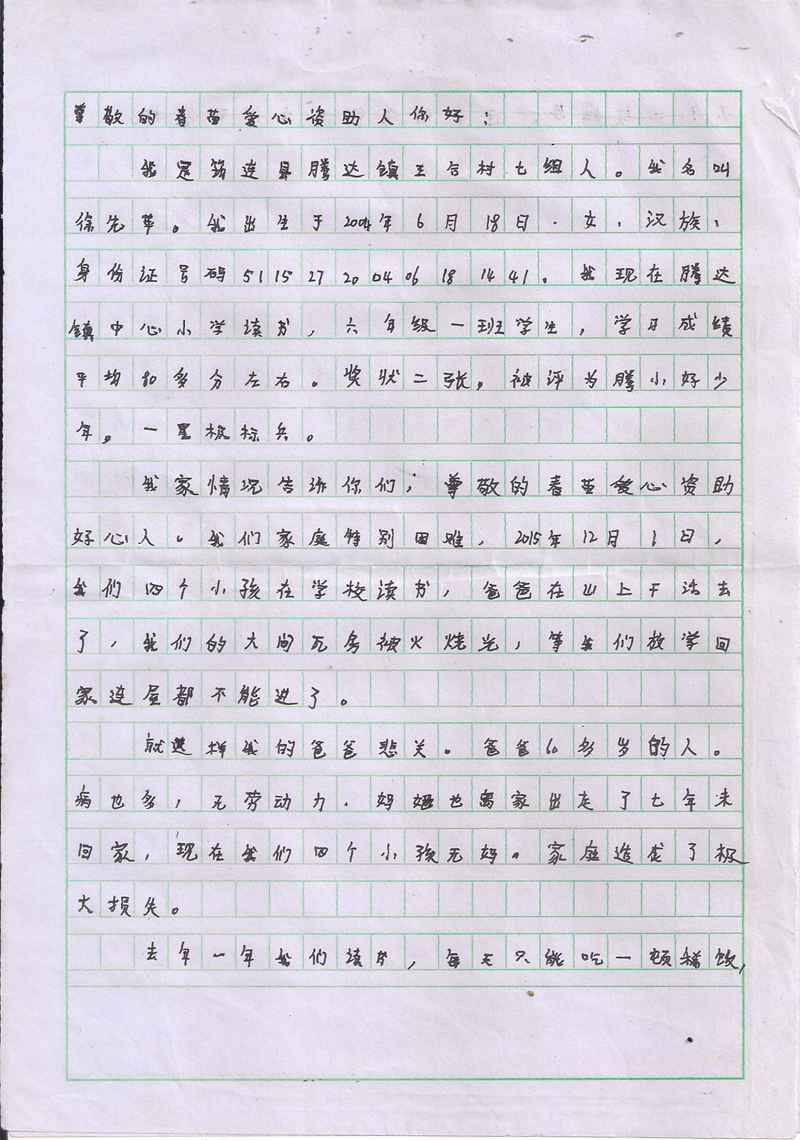 尊敬的春苗爱心资助人你好：
我是筠连县腾达镇王台村七组人。我名叫
徐先苹。我出生于2004年6月18日.女，汉族，
身份证号码511527200406181441。我现在腾达
镇中心小学读书，六年级一班学生，学习成绩
平均80多分左右。奖状二张。被评为腾小好少
年。一星极标兵。
我家情况告诉你们，尊敬的春苗爱心资助
好心人。我们家庭特别困难，2015年12月1日，
我们四个小孩在学校读书，爸爸在山上干活去
了，我们的大间瓦房被火烧光，等我们放学回
家连屋都不能进了。
就这样我的爸爸悲关。爸爸60多岁的人。
病也多，无劳动力.妈妈也离家出走了七年未
回家，现在我们四个小孩无妈。家庭造成了极
大损失。
去年一年我们读书，每天只能吃一顿稀饭，